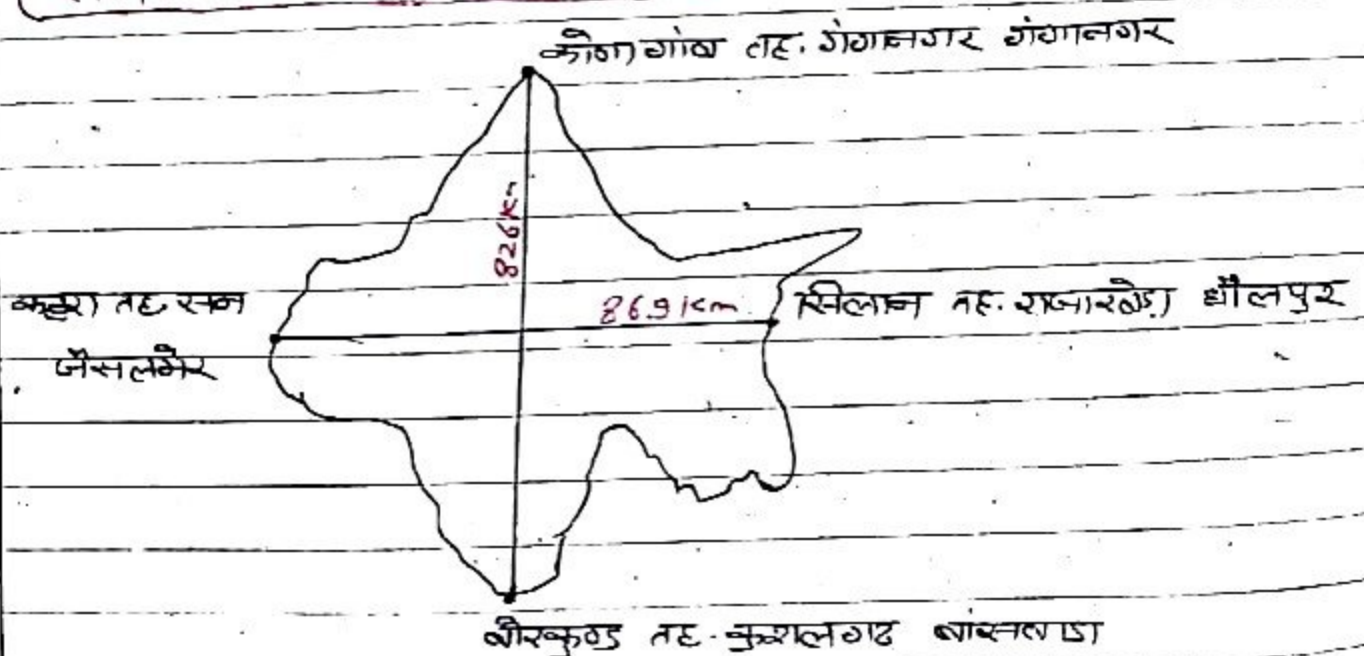 कोणा गांव तह. गंगानगर गंगानगर
826 Km
कट्टरा तह. सम
जैसलमेर
869 Km
सिलान तह. राजाखेड़ा धौलपुर
बोरकुण्ड तह. कुशलगढ बांसवाडा